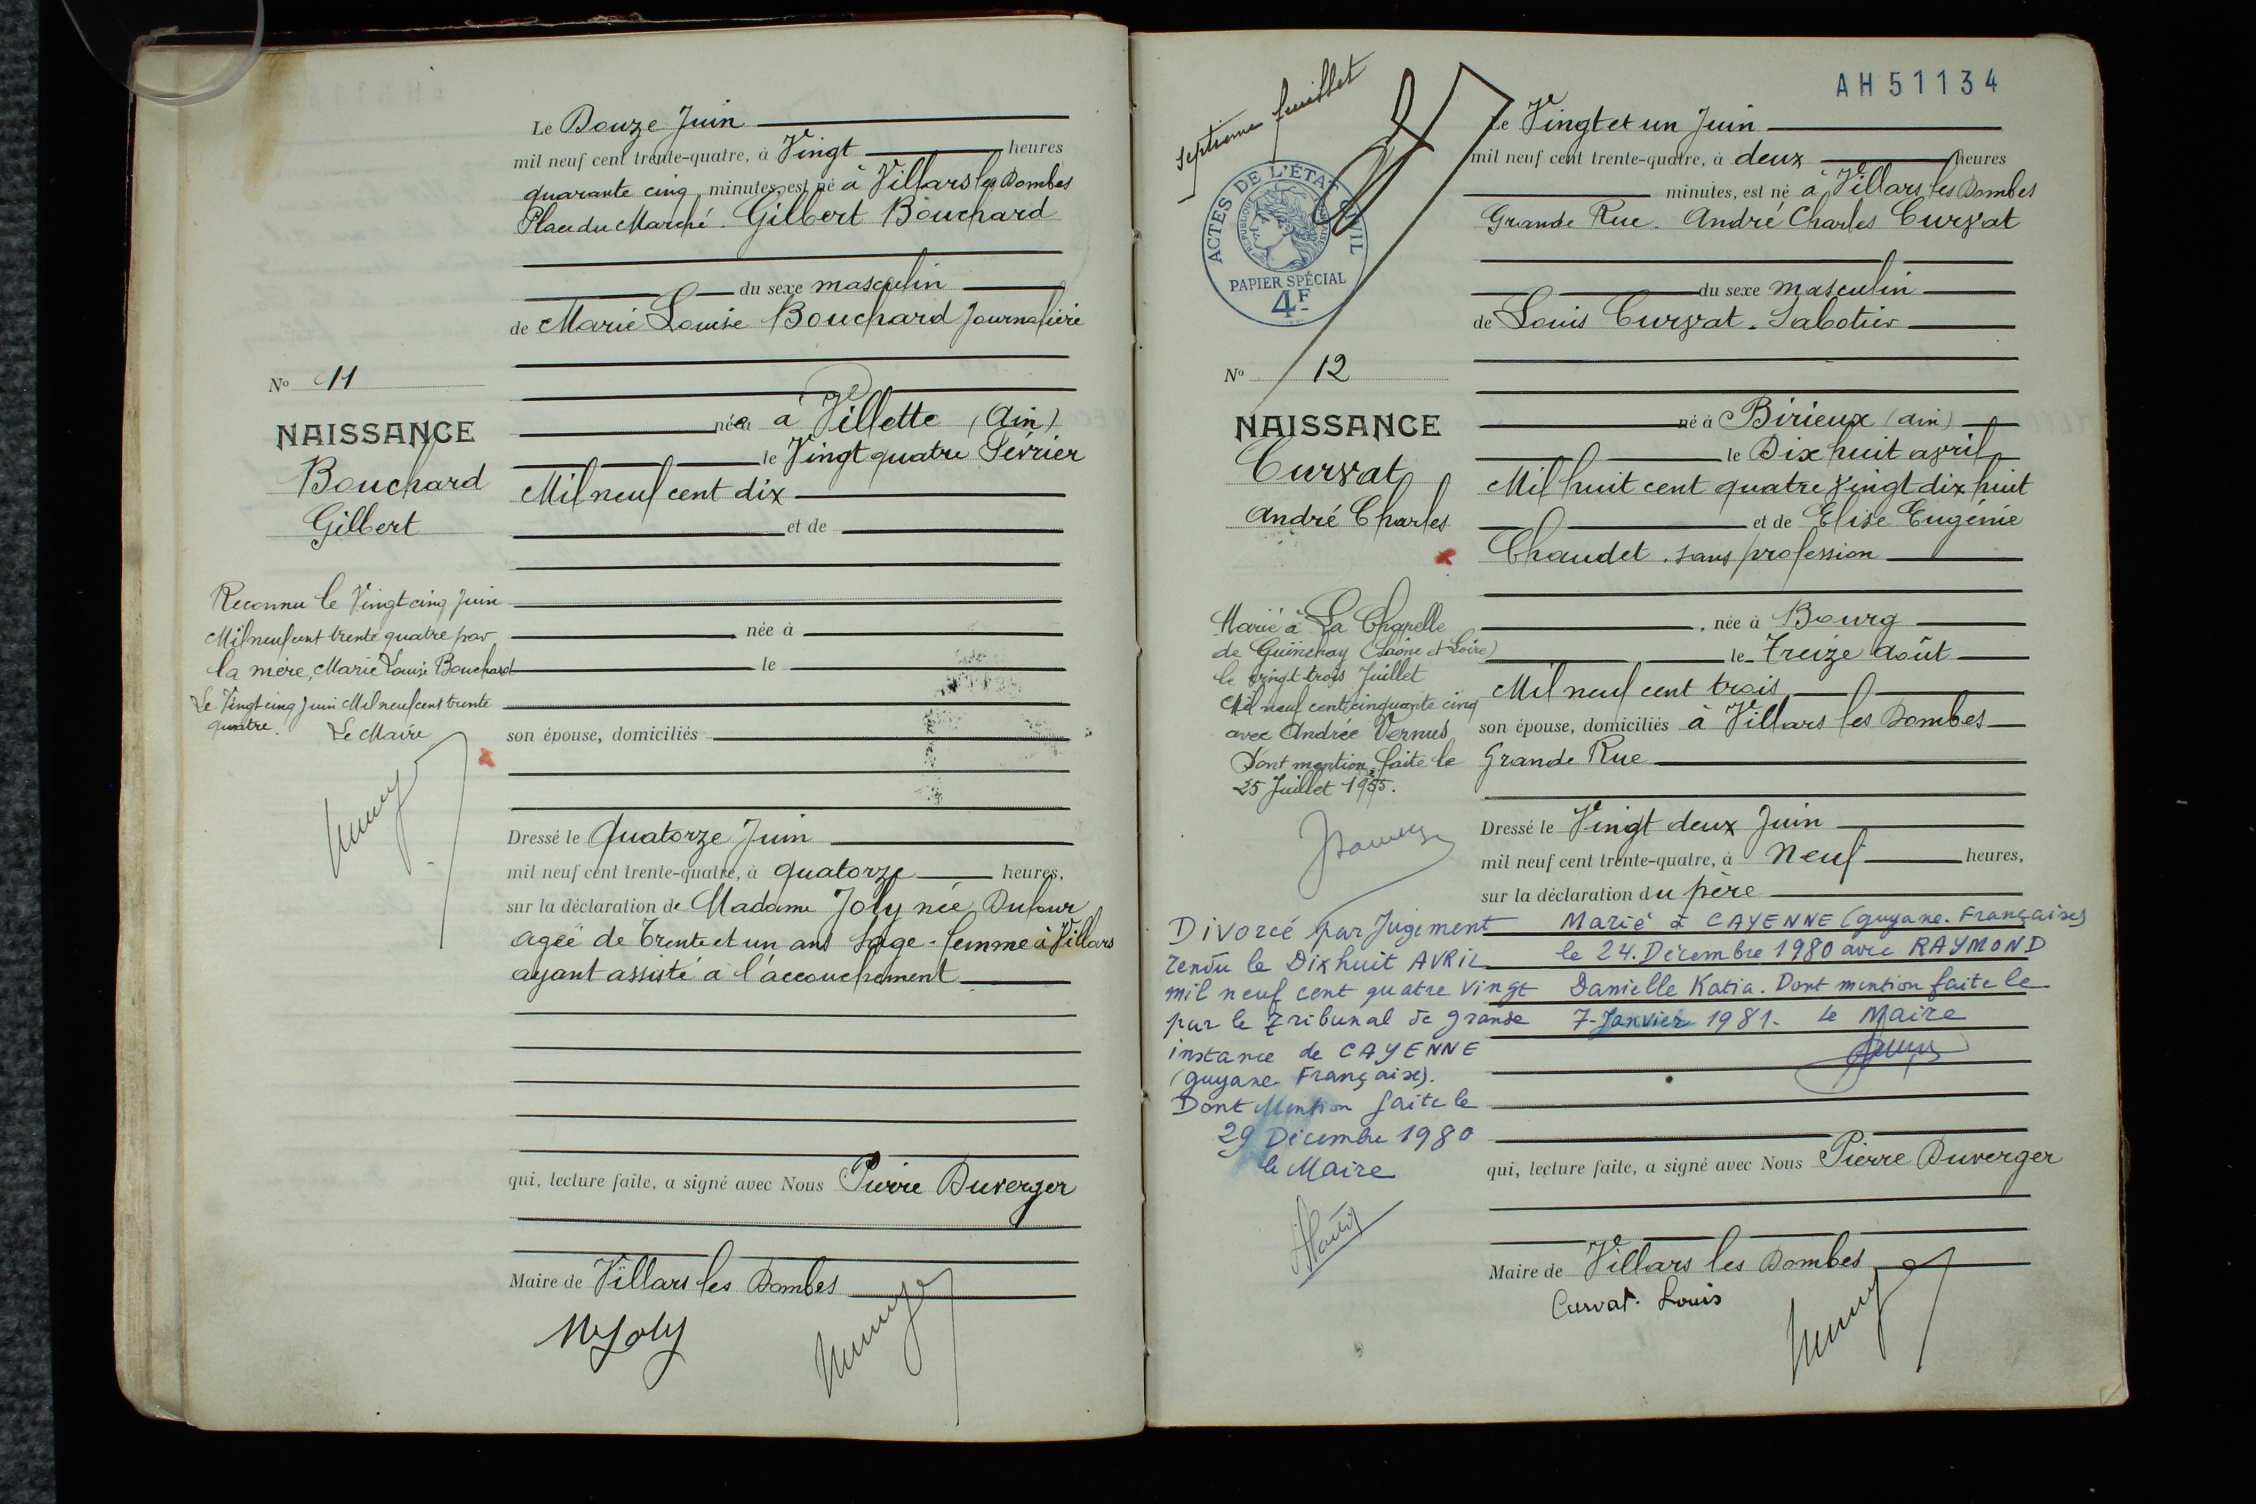 Le Douze Juin
mil neuf cent trente-quatre, à Vingt heures
quarante cinq minutes, est né à Villars les Dombes
Place du Marché. Gilbert Bouchard
du sexe masculin
de Marie Louise Bouchard Journalière
née à Villette (Ain)
le Vingt quatre Février
Mil neuf cent dix
et de
née à
le
son épouse, domiciliés
Dressé le Quatorze Juin
mil neuf cent trente-quatre, à quatorze heures,
sur la déclaration de Madame Joly née Dufour
agée de Trente et un ans sage-femme à Villars
ayant assisté à l'accouchement
qui, lecture faite, a signé avec Nous Pierre Duverger
Maire de Villars les Dombes
MJoly
No 11
NAISSANCE
Bouchard
Gilbert
Reconnu le Vingt cinq Juin
Mil neuf cent trente quatre par
la mère, Marie Louise Bouchard
Le Vingt cinq Juin Mil neuf cent trente
quatre. Le Maire
septième feuillet
ACTES DE L'ÉTAT CIVIL
RÉPUBLIQUE FRANÇAISE
PAPIER SPÉCIAL
4F
AH51134
Le Vingt et un Juin
mil neuf cent trente-quatre, à deux heures
minutes, est né à Villars les Dombes
Grande Rue. André Charles Curvat
du sexe masculin
de Louis Curvat. Sabotier
né à Birieux (Ain)
le Dix huit avril
Mil huit cent quatre vingt dix huit
et de Elise Eugénie
Chaudet. sans profession
, née à Bourg
le Treize Août
Mil neuf cent trois
son épouse, domiciliés à Villars les Dombes
Grande Rue
Dressé le Vingt deux Juin
mil neuf cent trente-quatre, à Neuf heures,
sur la déclaration du père
Marié à CAYENNE (guyane. Française)
le 24. Décembre 1980 avec RAYMOND
Danielle Katia. Dont mention faite le
7-Janvier 1981. Le Maire
qui, lecture faite, a signé avec Nous Pierre Duverger
Maire de Villars les Dombes
Curvat. Louis
No 12
NAISSANCE
Curvat
André Charles
Marié à La Chapelle
de Guinchay (Saône et Loire)
le vingt trois Juillet
Mil neuf cent cinquante cinq
avec Andrée Vernus
Dont mention faite le
25 Juillet 1955.
Divorcé par Jugement
rendu le Dix huit AVRIL
mil neuf cent quatre vingt
par le Tribunal de grande
instance de CAYENNE
(guyane Française).
Dont Mention faite le
29 Décembre 1980
le Maire